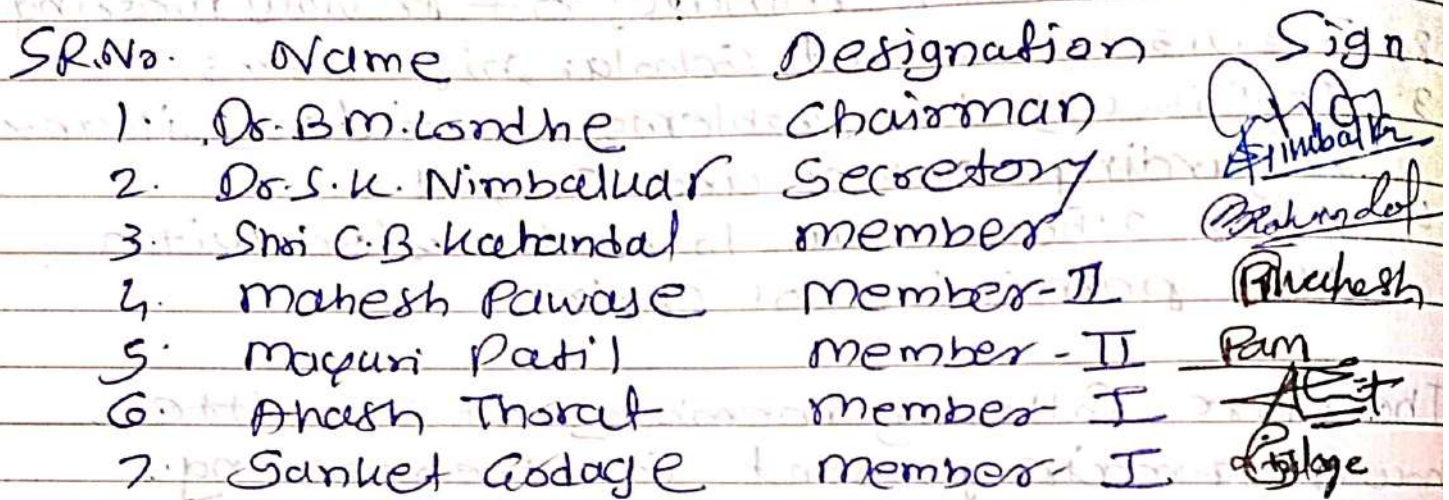 SR.No. Name Designation Sign
1. Dr. B.M. Londhe Chairman
2. Dr. S.K. Nimbalkar Secretory
3. Shri C.B. Kahandal member
4. Mahesh Pawase Member-II
5. Mayuri Patil Member-II Pam
6. Akash Thorat Member I
7. Sanket Godage Member-I